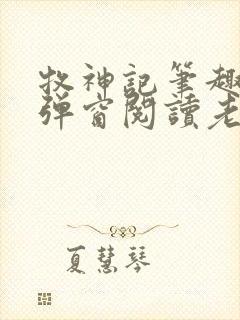 牧神記筆趣
彈窗閱讀老
夏慧琴